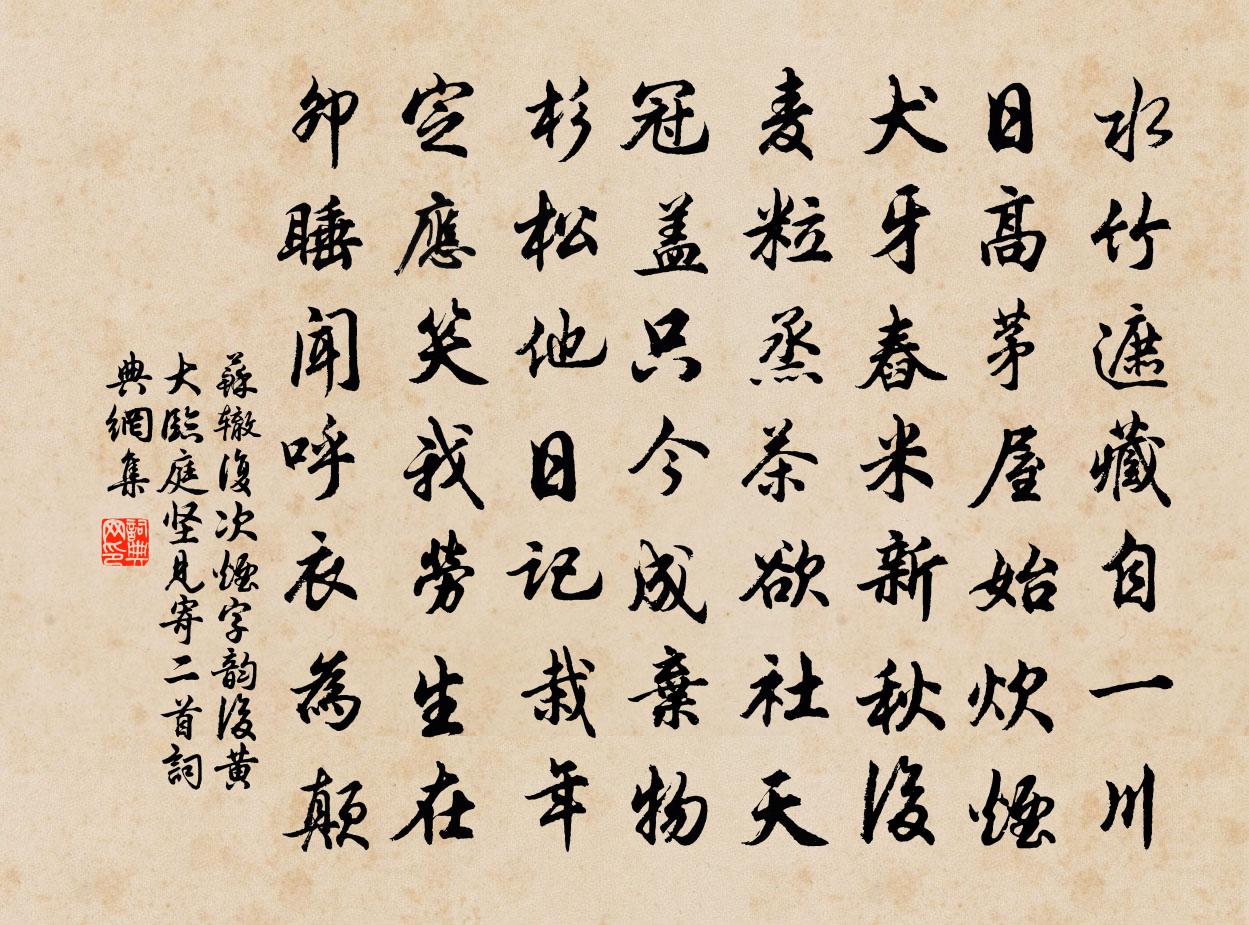 水竹遮藏自一川
日高茅屋始炊煙
犬牙舂米新秋後
麦粒蒸茶欲社天
冠盖只今成棄物
杉松他日記栽年
定應笑我勞生在
卯睡聞呼衣為顛
蘇辙復次煙字韵後黄
大臨庭坚見寄二首詞
典網集
詞典
网印